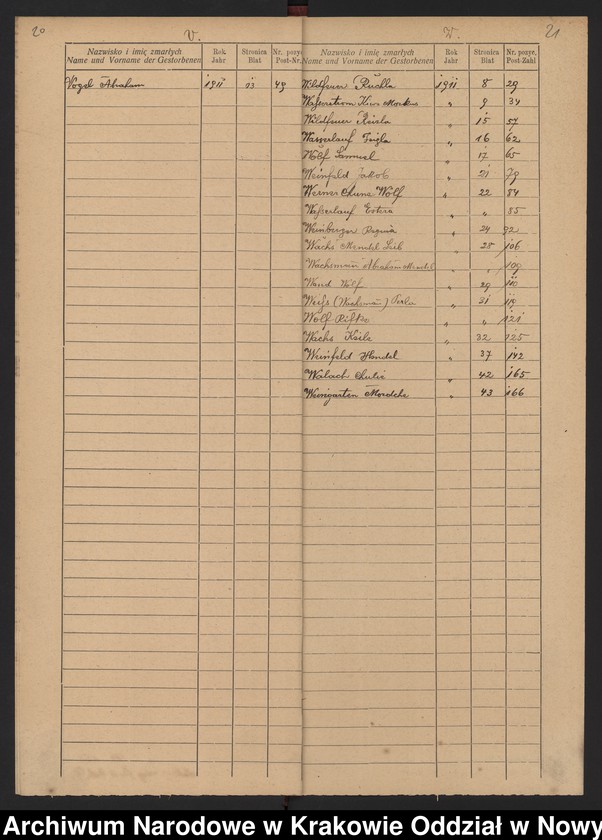 20
V.
Nazwisko i imię zmarłych
Name und Vorname der Gestorbenen
Rok
Jahr
Stronica
Blat
Nr. pozyc.
Post-Nr.
Vogel Abraham 1911 13 49
21
W.
Nazwisko i imię zmarłych
Name und Vorname der Gestorbenen
Rok
Jahr
Stronica
Blat
Nr. pozyc.
Post-Zahl
Wildfeuer Ruchla 1911 8 29
Wasserstrom " 9 34
Wildfeuer Reisla " 15 57
Wasserlauf Feigla " 16 62
Wolf Samuel " 17 65
Weinfeld Jakob " 21 79
Werner Chune Wolf " 22 84
Wasserlauf Estera " " 85
Weinberger Regina " 24 92
Wachs Mendel Leib " 28 106
Wachsman Abraham Mendel " " 109
Wand Wolf " 29 110
Weiss (Wachsman) Perla " 31 119
Wolf Rifka " " 121
Wachs Keila " 32 125
Weinfeld Hendel " 37 142
Walach " 42 165
Weingarten Mordche " 43 166
Archiwum Narodowe w Krakowie Oddział w Nowy